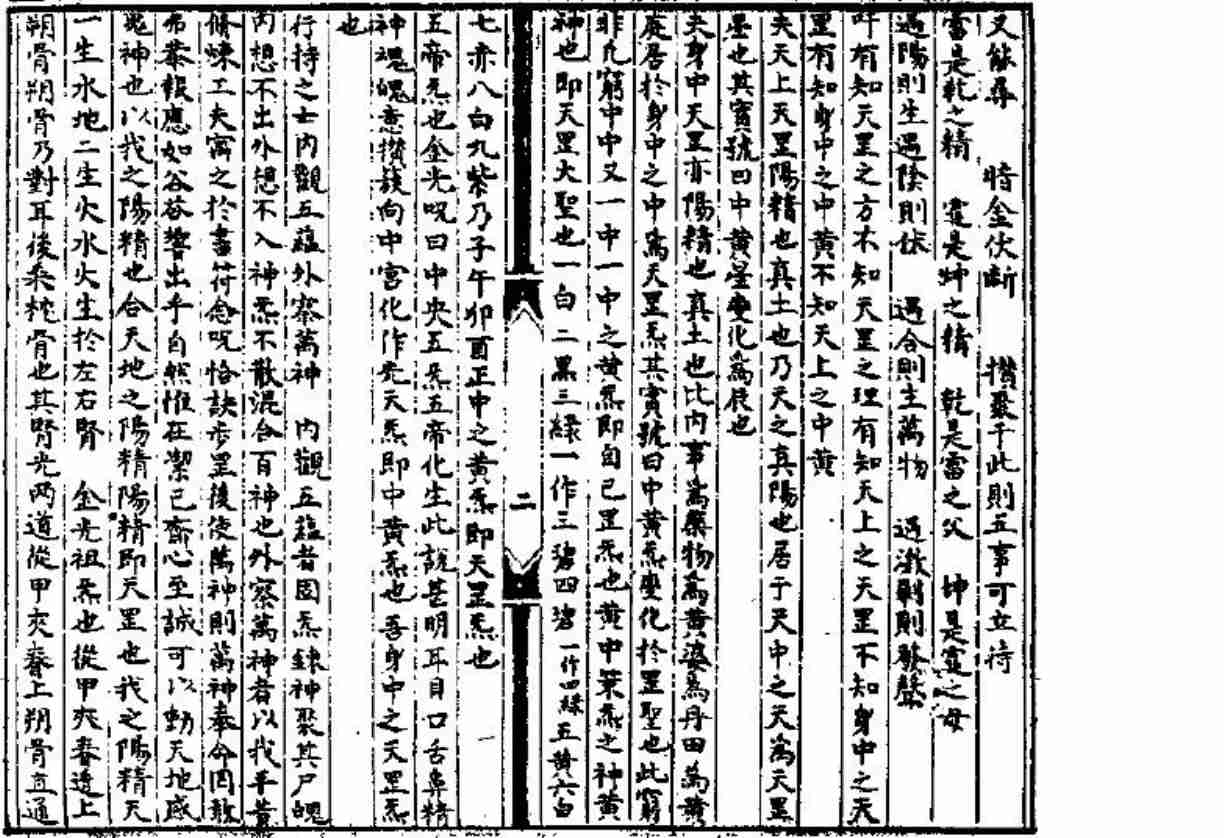 又能尋 時金伏斷 攢聚于此則五事可立待
雷是乾之精 霆是坤之精 乾是雷之父 坤是霆之母
遇陽則生遇陰則伏 遇合則生萬物 遇激剝則發聲
吁有知天罡之方不知天罡之理有知天上之天罡不知身中之天
罡有知身中之中黃不知天上之中黃
夫天上天罡陽精也真土也乃天之真陽也居于天中之天為天罡
星也其寶號曰中黃星變化為辰也
夫身中天罡亦陽精也真土也比内事為藥物為黃婆為丹田為黃
庭居於身中之中為天罡炁其寶號曰中黃炁變化於罡聖也此竅
非凡竅中中又一中一中之黃炁即自已罡炁也黃中策炁之神黃
神也即天罡大聖也一白二黑三綠一作三碧四碧一作四綠五黃六白
二
七赤八白九紫乃子午卯酉正中之黃炁即天罡炁也
五帝炁也金光呪曰中央五炁五帝化生此說甚明耳目口舌鼻精
神魂魄意攢簇向中宮化作先天炁即中黃炁也吾身中之天罡炁
也
行持之士内觀五蘊外察萬神 内觀五蘊者固炁鍊神聚其尸魄
内想不出外想不入神炁不散混合百神也外察萬神者以我平昔
脩煉工夫寓之於書符念呪恰訣步罡後使萬神則萬神奉令罔敢
弗恭報應如谷荅響出乎自然惟在潔已齋心至誠可以動天地感
鬼神也以我之陽精也合天地之陽精陽精即天罡也我之陽精天
一生水地二生火水火生於左右腎 金光祖炁也從甲夾脊透上
朔骨朔骨乃對耳後枀枕骨也其腎光两道從甲夾脊上朔骨直通